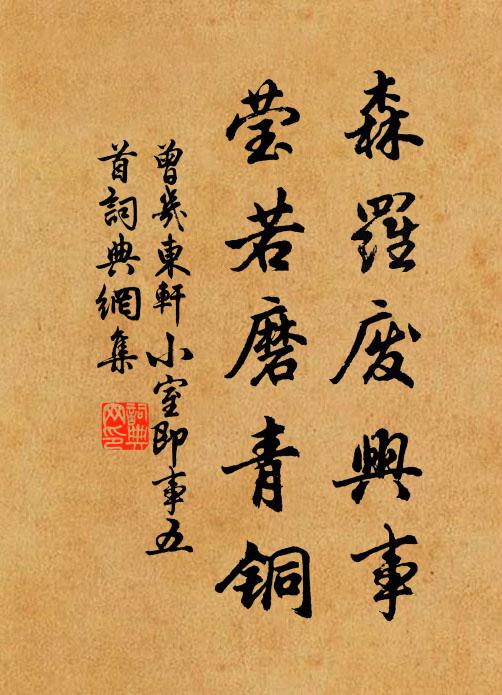 森羅废興事
莹若磨青铜
曾幾東軒小室即事五
首詞典網集
詞典網印